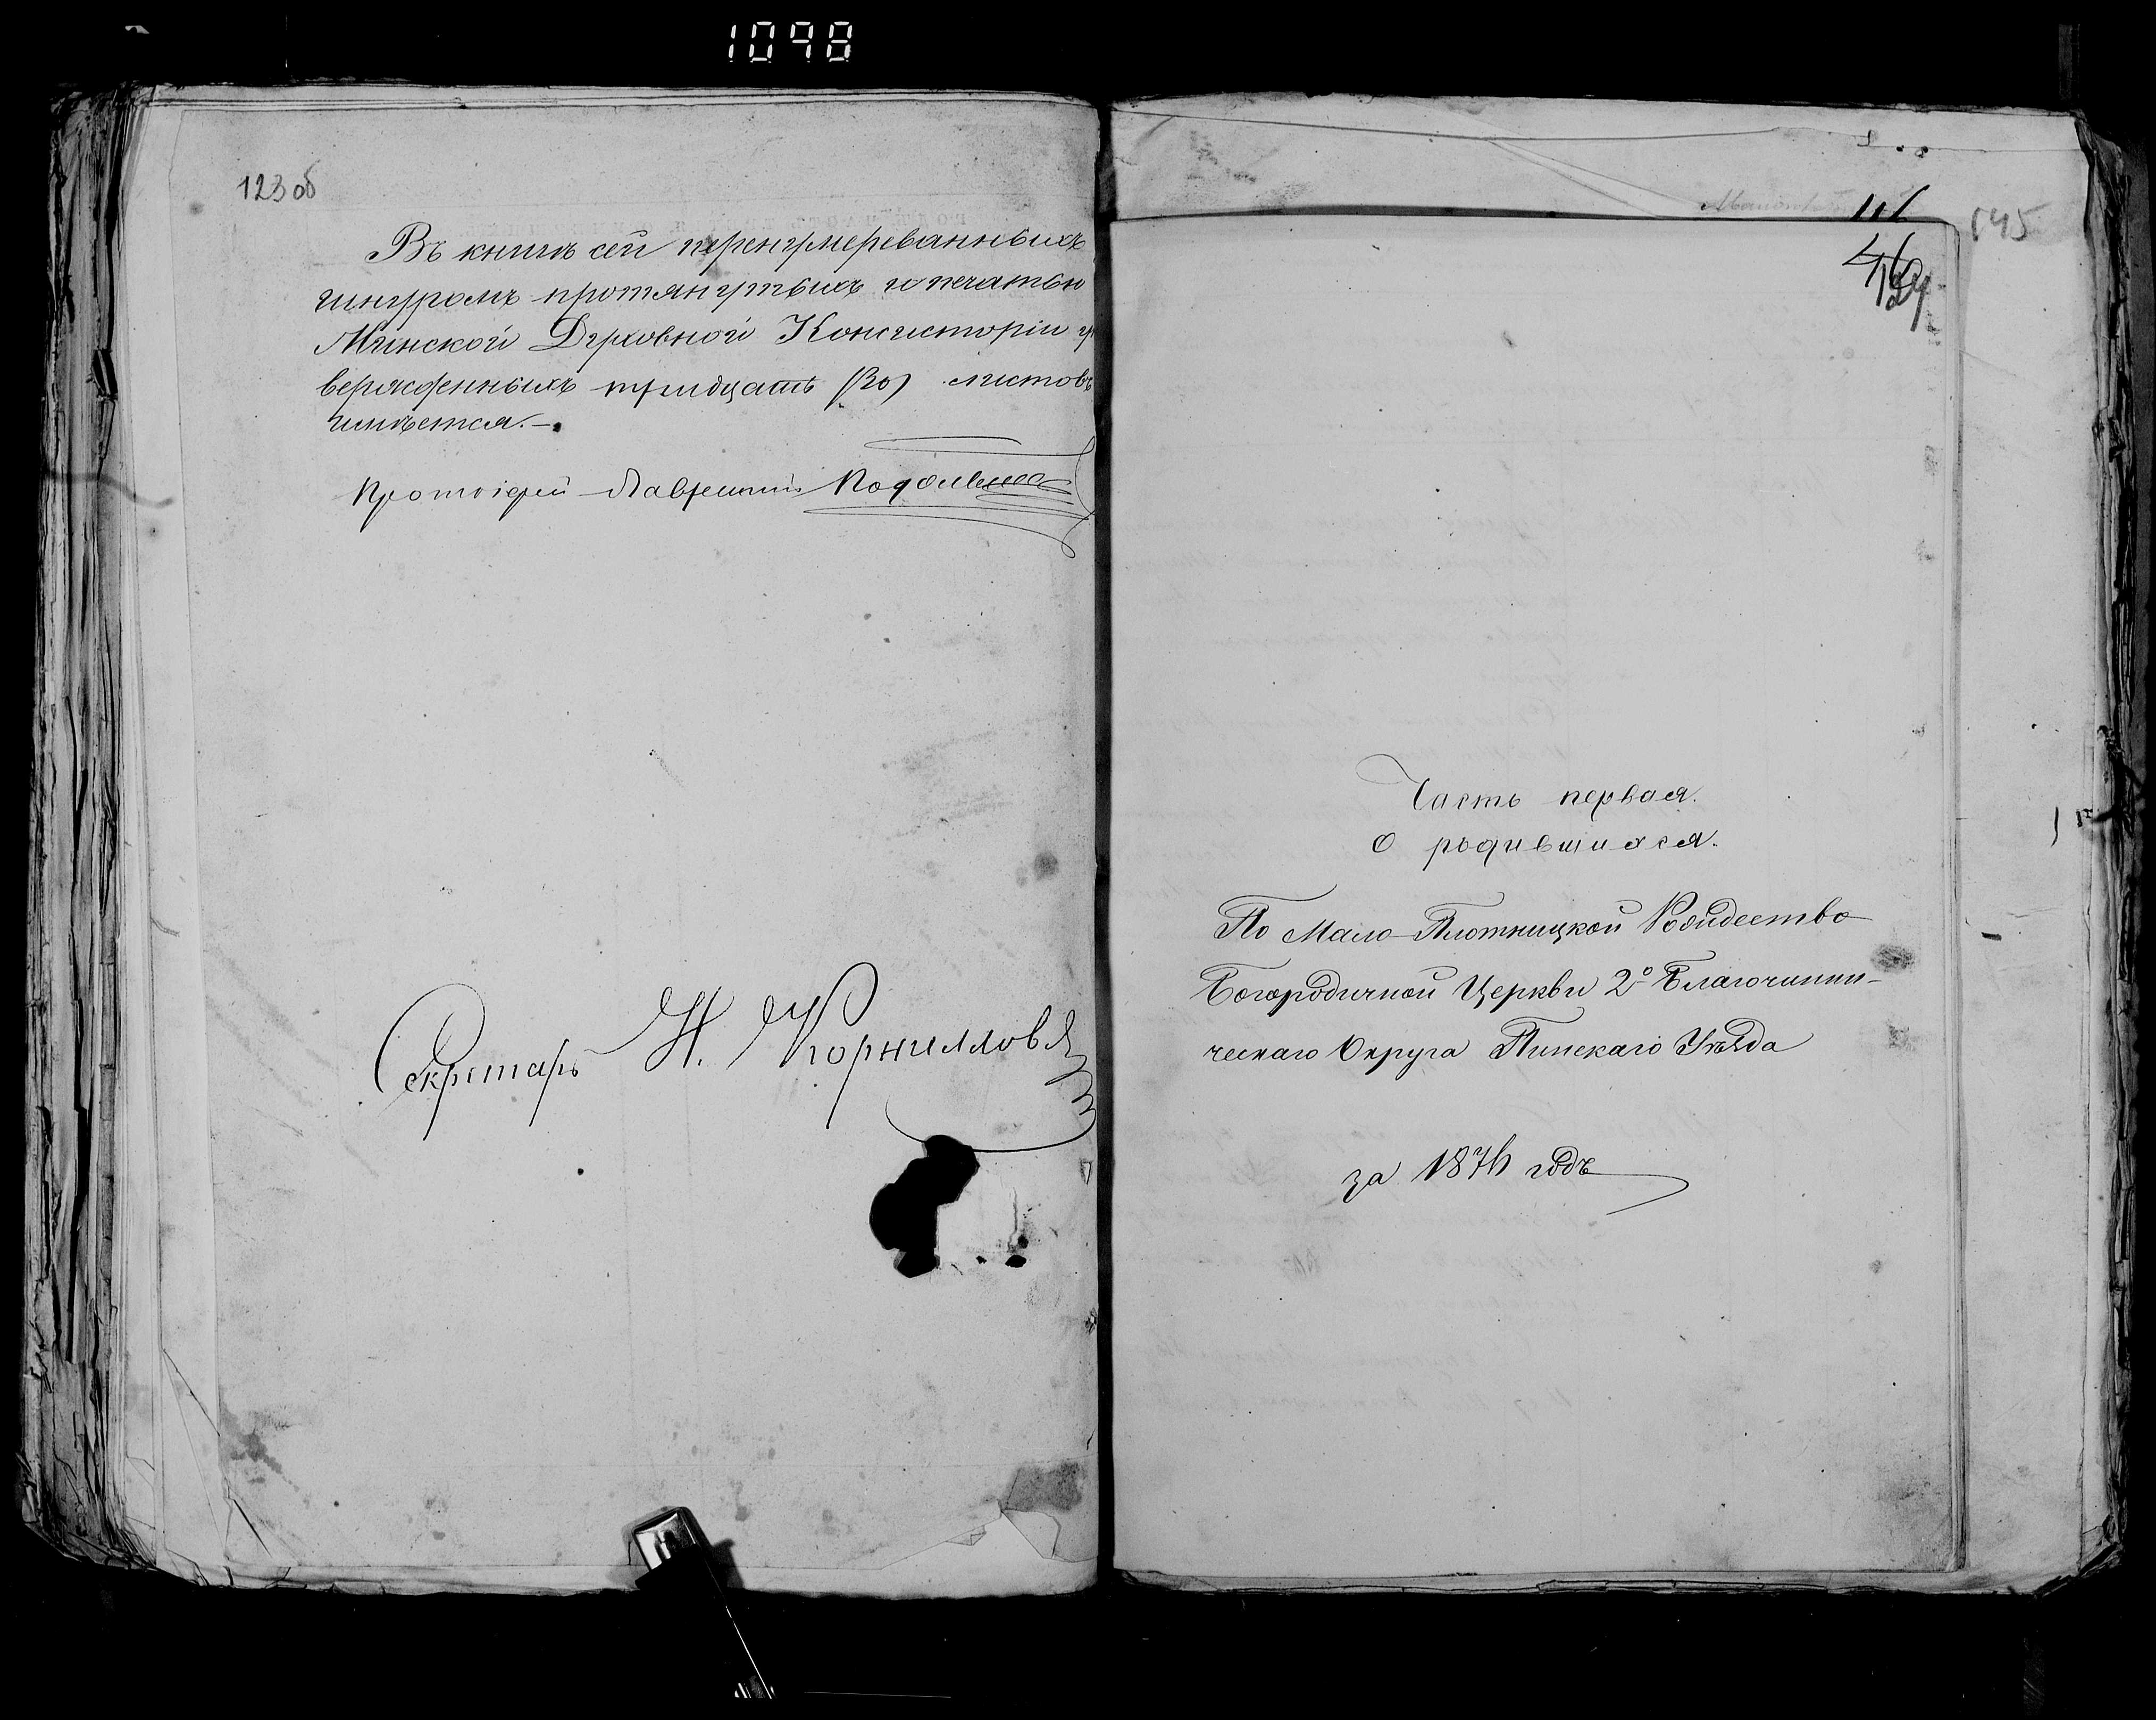 1098
123 об
Въ книгѣ сей перенумерованныхъ
шнуромъ протянутыхъ и печатью
Минской Духовной Консисторіи у
вержденныхъ тридцать (30) листовъ
имѣется.
Протоіерей Лаврентій
Секретарь Н. Корнилловъ
145
Часть первая.
О родившихся.
По Мало-Плотницкой Рождество
Богородичной Церкви 2º Благочинни-
ческаго Округа Пинскаго Уѣзда
за 1876 годъ